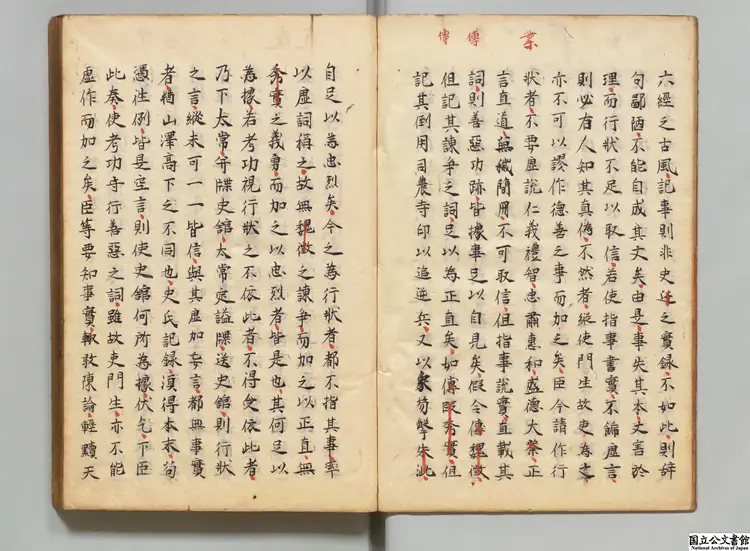 業
傳
傳
六經之古風記事則非史迁之實録不如此則辞
句鄙陋不能自成其文矣由是事失其本文害於
理而行狀不足以取信若使指事書實不飾虛言
則必有人知其真偽不然者縱使門生故吏為之
亦不可以謬作德善之事而加之矣臣今請作行
狀者不要虛說仁義禮智忠肅惠和盛德大業正
言直道蕪穢簡冊不可取信但指事說實直載其
詞則善惡功跡皆據事足以自見矣假令傳魏徵
但記其諫爭之詞足以為正直矣如傳段秀實但
記其倒用司農寺印以追逆兵又以象笏擊朱泚
自足以為忠烈矣今之為行狀者都不指其事率
以虛詞稱之故無魏徵之諫爭而加之以正直無
秀實之義勇而加之以忠烈者皆是也其何足以
為據若考功視行狀之不依此者不得受依此者
乃下太常并牒史館太常定謚牒送史館則行狀
之言縱未可一一皆信與其虛加妄言都無事實
者猶山澤高下之不同也史氏記録須得本末苟
憑往例皆是空言則使史館何所為據伏乞下臣
此奏使考功寺行善惡之詞雖故吏門生亦不能
虛作而加之矣臣等要知事實輒敢陳論輕黷天
国立公文書館
National Archives of Japan